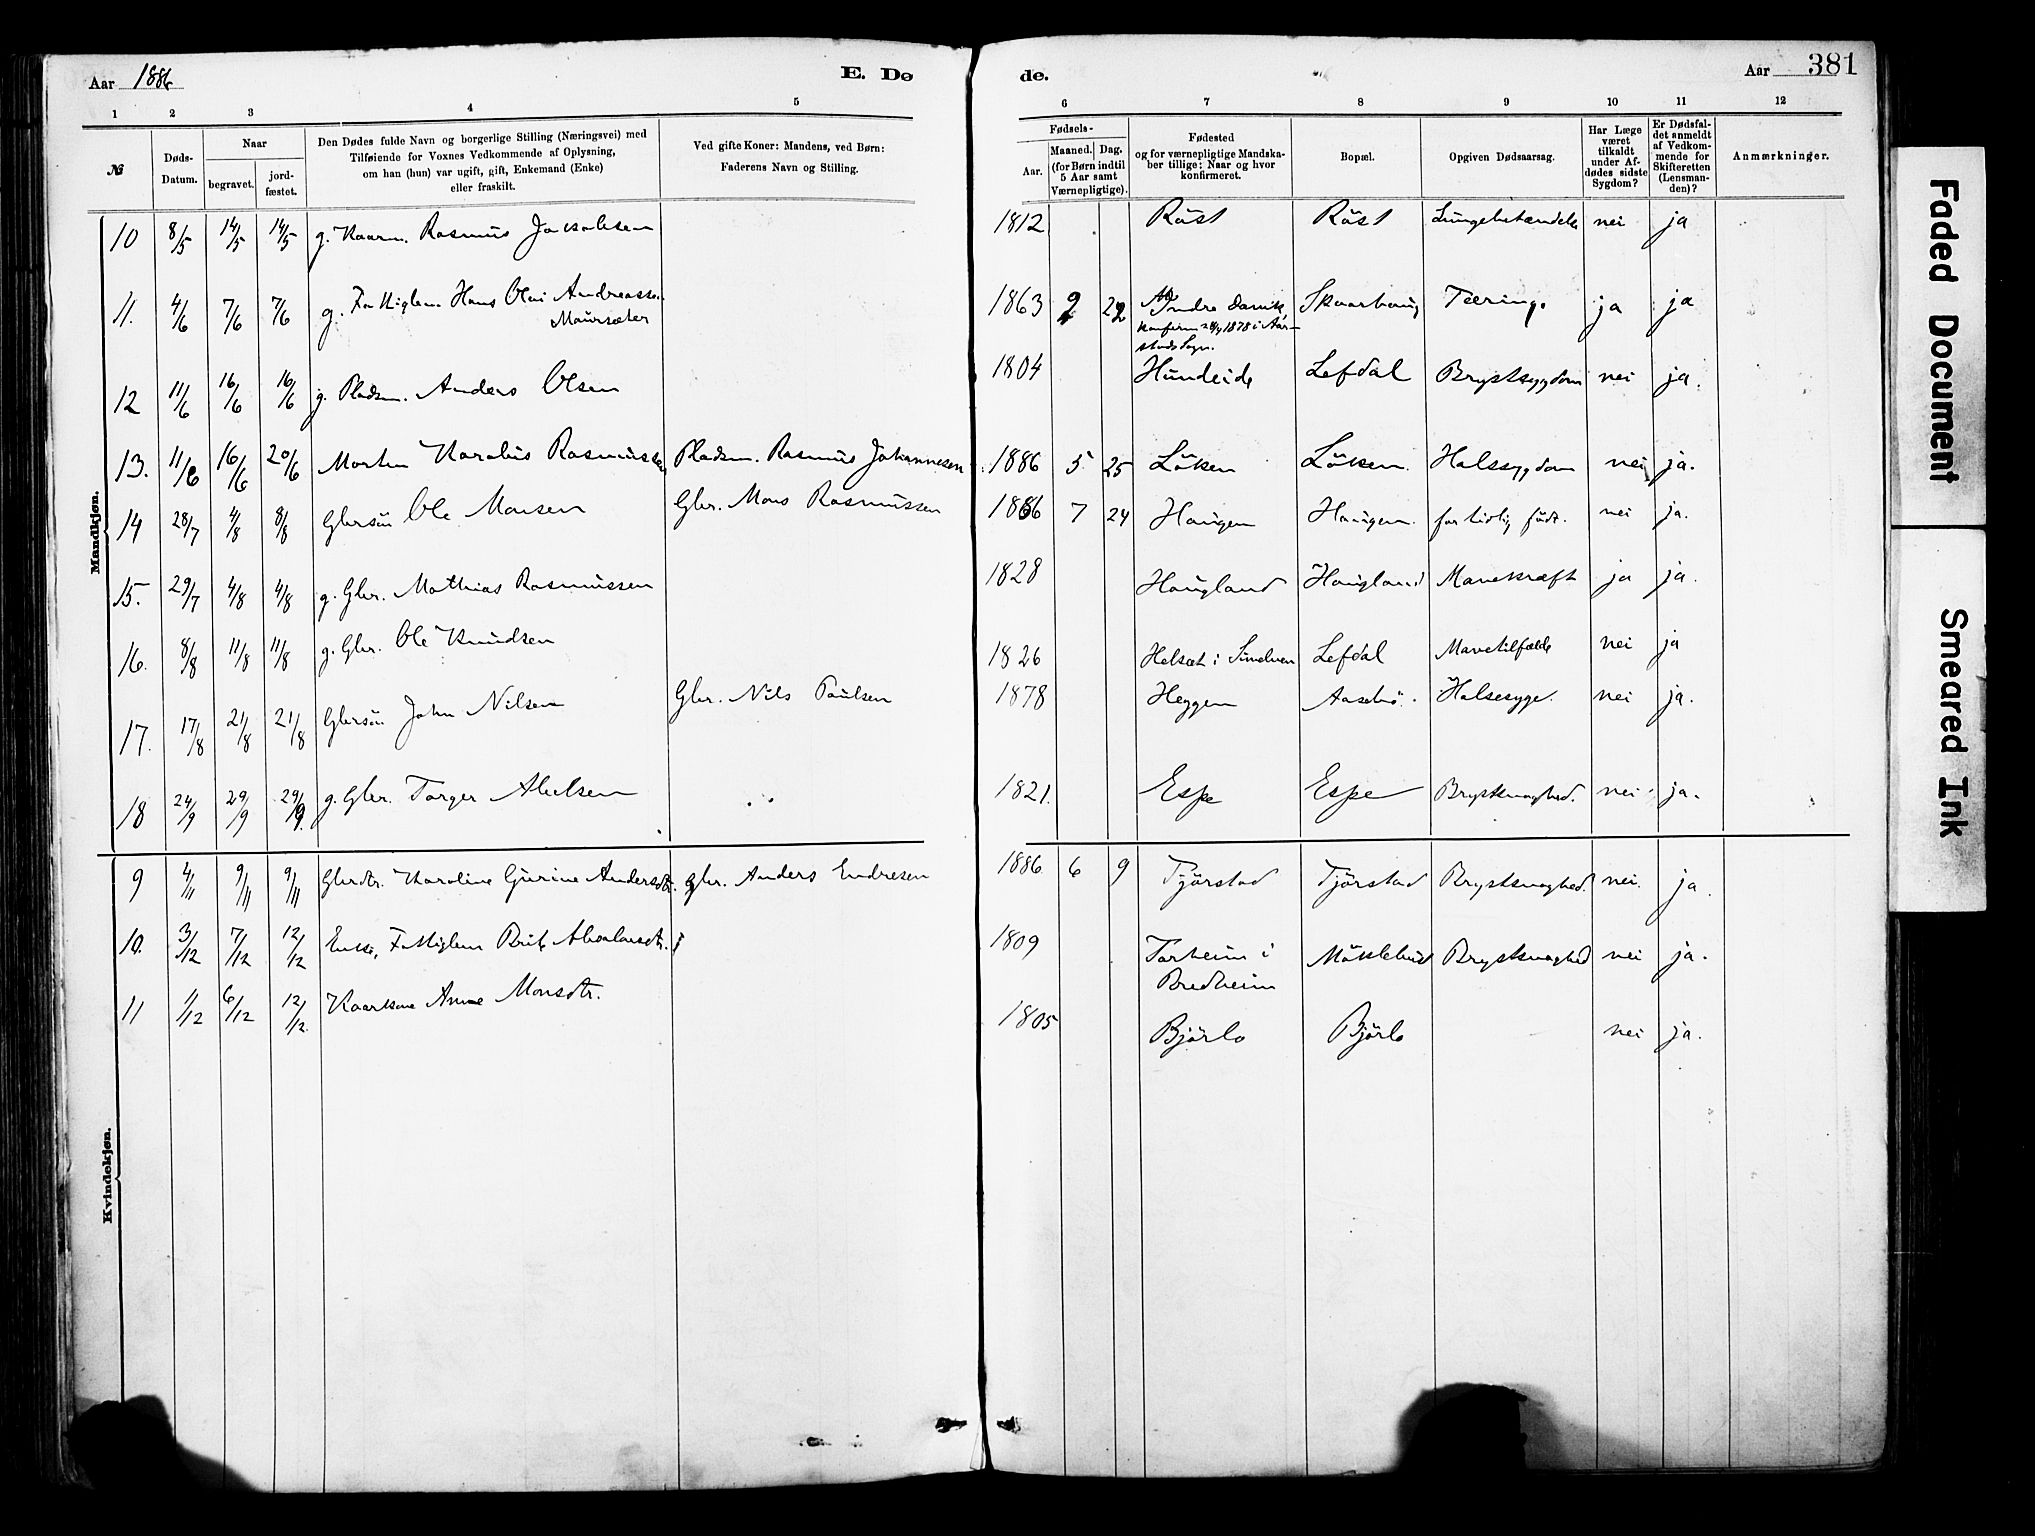 Aar 1886
E. Dø
de.
Aar 381
1 2 3 4 5 6 7 8 9 10 11 12
№
Døds-Datum.
Naar
begravet.
jord-fæstet.
Den Dødes fulde Navn og borgerlige Stilling (Næringsvei) med
Tilføiende for Voxnes Vedkommende af Oplysning,
om han (hun) var ugift, gift, Enkemand (Enke)
eller fraskilt.
Ved gifte Koner: Mandens, ved Børn:
Faderens Navn og Stilling.
Fødsels-
Aar.
Maaned. Dag.
(for Børn indtil
5 Aar samt
Værnepligtige).
Fødested
og for værnepligtige Mandska-
ber tillige: Naar og hvor
konfirmeret.
Bopæl.
Opgiven Dødsaarsag.
Har Læge
været
tilkaldt
under Af-
dødes sidste
Sygdom?
Er Dødsfal-
det anmeldt
af Vedkom-
mende for
Skifteretten
(Lensman-
den)?
Anmærkninger.
Mandkjøn.
10 8/5 14/5 14/5 g. Kaarm. Rasmus Jakobsen 1812 Röst Röst Lungebetændelse nei ja
11. 4/6 7/6 7/6 g. Fattiglem Hans Olai Andreassen 1863 2 22 Indre Skaarhaug Tæring. ja ja
Maursæter konfirm 1878 i Aar-
stads Sogn.
12 11/6 16/6 16/6 g. Pladsm. Anders Olsen 1804 Hundeide Lefdal Brystsygdom nei ja.
13. 11/6 16/6 20/6 Morten Karolus Rasmussen Pladsm. Rasmus Johannesen 1886 5 25 Löken Löken. Halssygdom nei ja.
14 28/7 4/8 8/8 Gbrsön Ole Monsen Gbr. Mons Rasmussen 1886 7 24 Haugen Haugen. for tidlig födt. nei ja.
15. 29/7 4/8 4/8 g. Gbr. Mathias Rasmussen 1828 Haugland Haugland Mavekræft ja ja.
16. 8/8 11/8 11/8 g. Gbr. Ole Knudsen 1826 Helsæt i Lefdal Mavetilfælde nei ja
17. 17/8 21/8 21/8 Gbrsön John Nilsen Gbr. Nils Paulsen 1878 Heggen Aasebö. Halsesyge. nei ja.
18 24/9 29/9 29/9. g. Gbr. Torger Abelsen 1821. Espe Espe Brystsvaghed. nei ja.
Kvindekjøn.
9 4/11 9/11 9/11 Gbrdtr. Karoline Gurine Andersdtr. gbr. Anders Endresen 1886 6 9 Tjörstad Tjörstad Brystsvaghed. nei. ja.
10. 3/12 7/12 12/12 Enke, Fattiglem Brit 1809 Torheim i Möklebust Brystsvaghed nei ja.
Bredheim
11 1/12 6/12 12/12. Kaarkone Anne Monsdtr. 1805 Björlo Björlo nei ja.
Faded Document
Smeared Ink